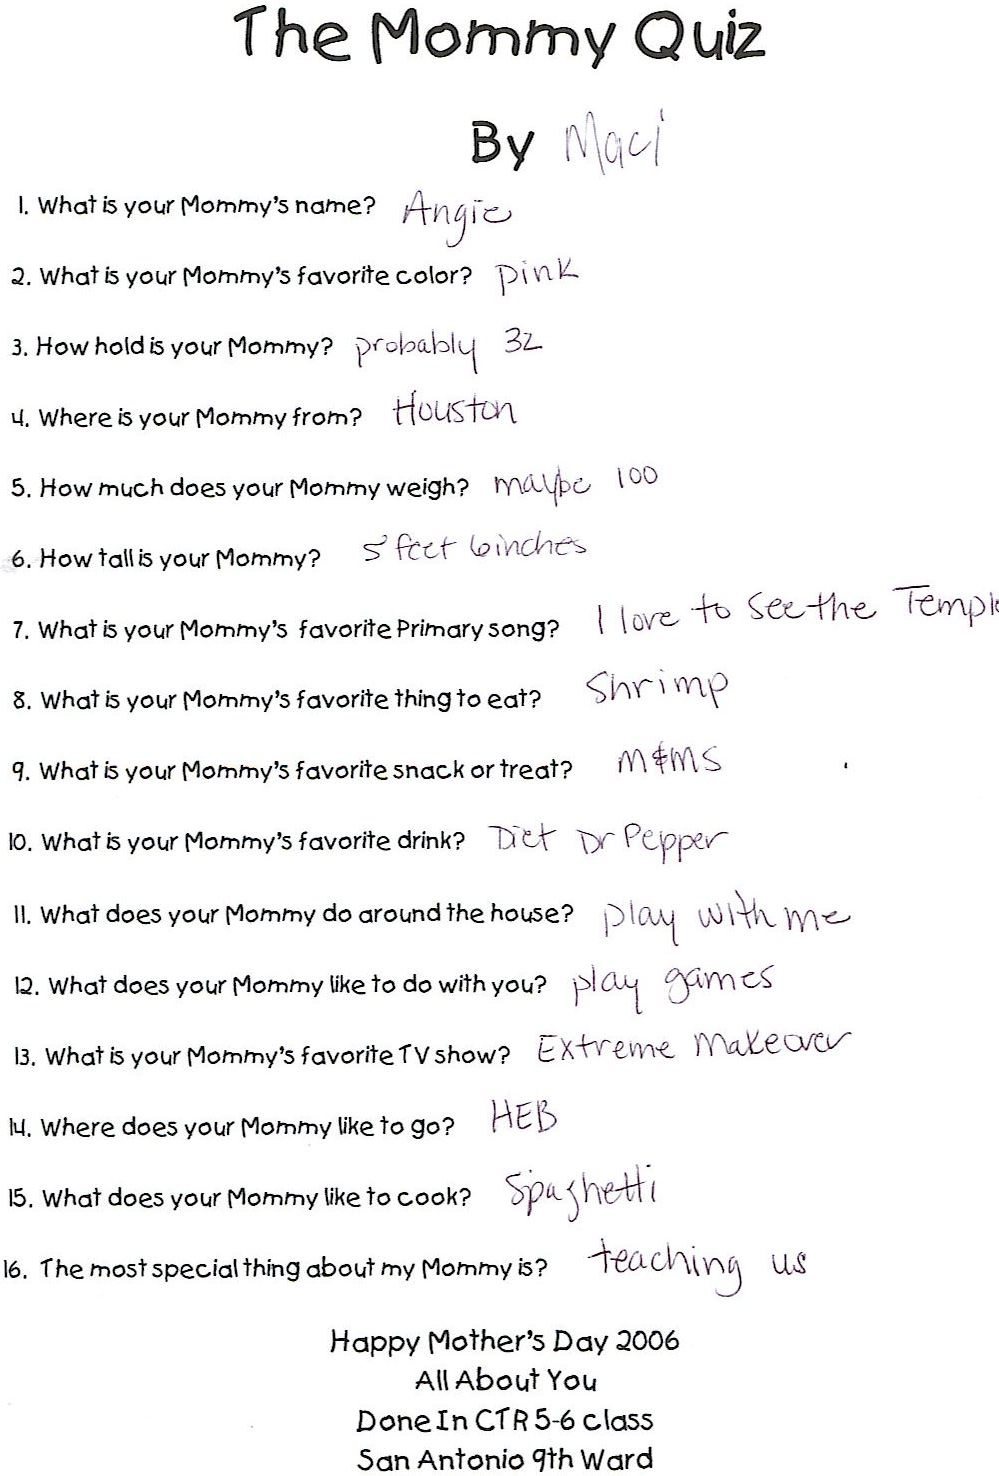 The Mommy Quiz
By Maci
1. What is your Mommy's name? Angie
2. What is your Mommy's favorite color? pink
3. How hold is your Mommy? probably 32
4. Where is your Mommy from? Houston
5. How much does your Mommy weigh? maybe 100
6. How tall is your Mommy? 5 feet 6 inches
7. What is your Mommy's favorite Primary song? I love to See the Temple
8. What is your Mommy's favorite thing to eat? Shrimp
9. What is your Mommy's favorite snack or treat? M&MS
10. What is your Mommy's favorite drink? Diet Dr Pepper
11. What does your Mommy do around the house? play with me
12. What does your Mommy like to do with you? play games
13. What is your Mommy's favorite TV show? Extreme Makeover
14. Where does your Mommy like to go? HEB
15. What does your Mommy like to cook? Spaghetti
16. The most special thing about my Mommy is? teaching us
Happy Mother's Day 2006
All About You
Done In CTR 5-6 class
San Antonio 9th Ward